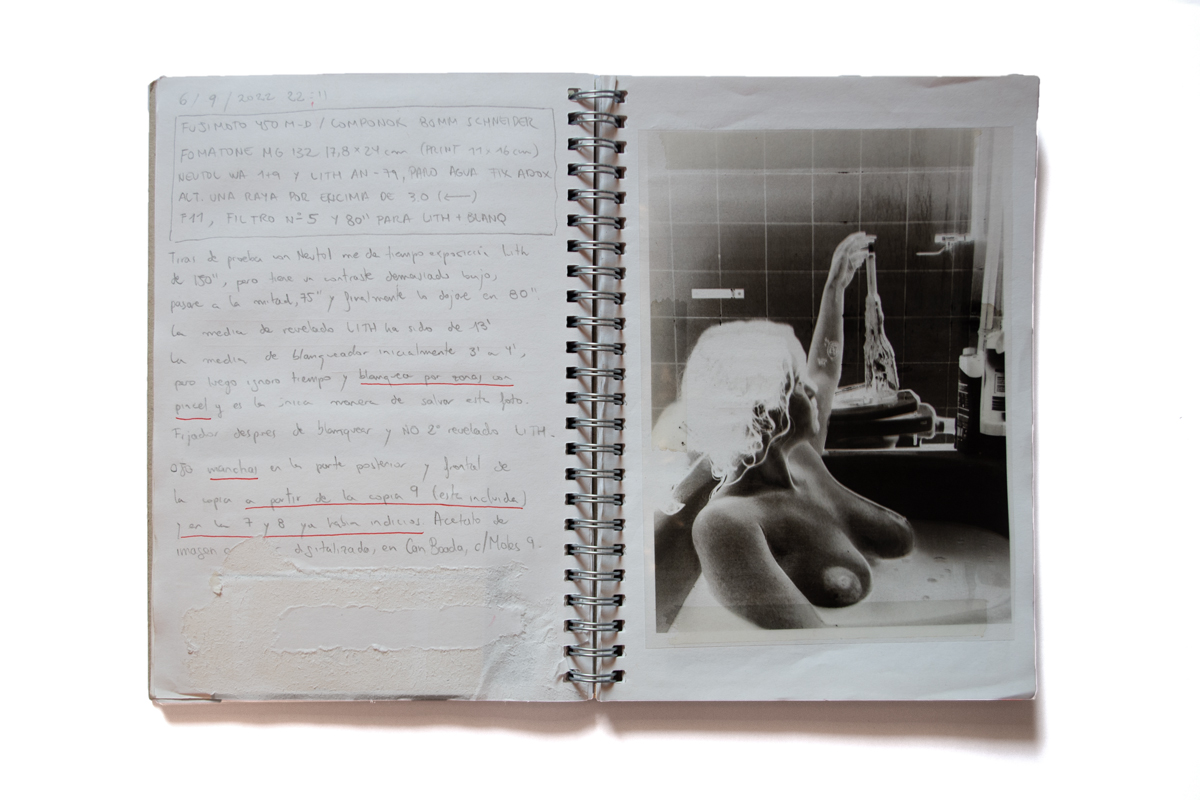 6/9/2022 22:11
FUJIMOTO 450 M-D / COMPONOR 80MM SCHNEIDER
FOMATONE MG 132 17,8 x 24 cm (PRINT 11 x 16 cm)
NEUTOL WA 1+9 Y LITH AN-79, PARO AGUA FIX ADOX
ALT. UNA RAYA POR ENCIMA DE 3.0 (←)
F11, FILTRO Nº 5 Y 80" PARA LITH + BLANQ
Tiras de prueba con Neutol me da tiempo exposición Lith
de 150", pero tiene un contraste demasiado bajo,
pasare a la mitad, 75" y finalmente lo dejare en 80".
La media de revelado LITH ha sido de 13'
La media de blanqueador inicialmente 3' a 4',
pero luego ignoro tiempo y blanqueo por zonas con
pincel y es la única manera de salvar esta foto.
Fijador despues de blanquear y NO 2º revelado LITH.
OJO manchas en la parte posterior y frontal de
la copia a partir de la copia 9 (esta incluida)
y en la 7 y 8 ya había indicios. Acetato de
imagen digitalizado, en Can Boada, c/Moles 9.